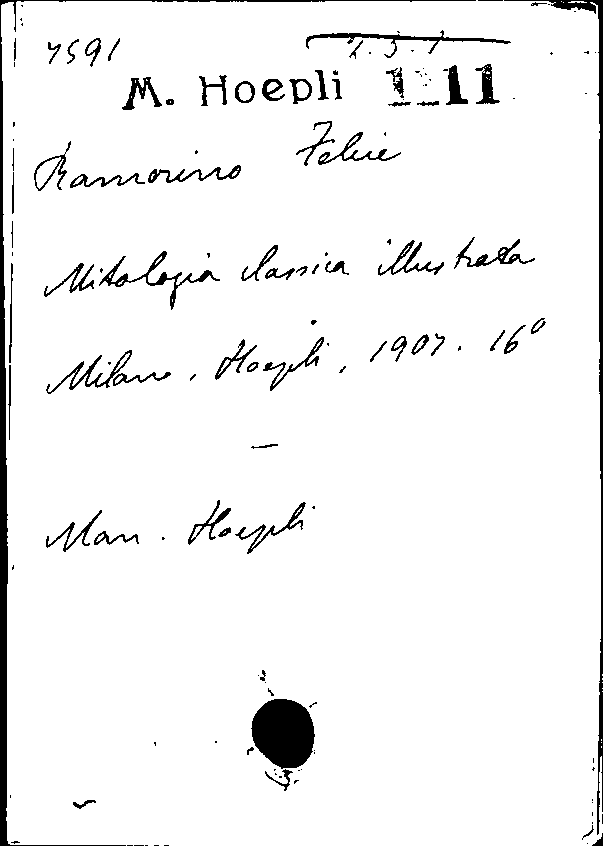 7591 2.3.1
M. Hoepli 1 11
Ramorino Felice
Mitologia classica illustrata
Milano, Hoepli, 1907. 16°
—
Man. Hoepli